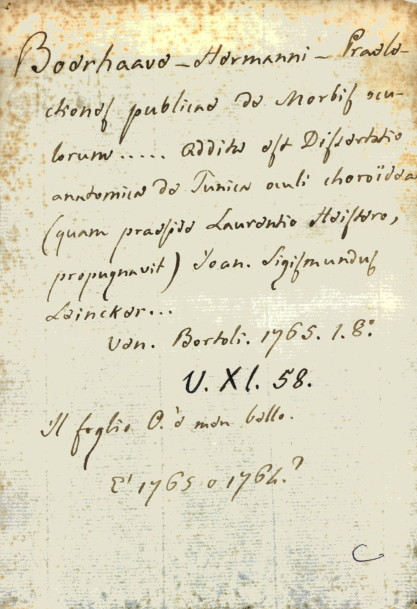 Boerhaave – Hermanni – Praele-
ctiones publicae de Morbis ocu-
lorum..... addita est Dissertatio
anatomica de Tunica oculi choroidea
(quam praeside Laurentio Heistero,
propugnavit) Joan. Sigismundus
Leincker...
Ven. Bortoli. 1765. 1. 8.º
V. XI. 58.
Il foglio O. è men bello.
E' 1765 o 1764.?